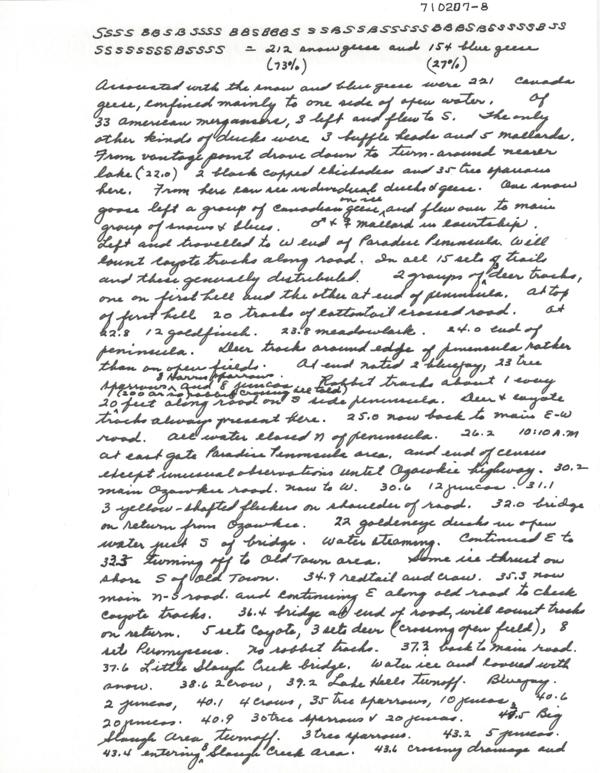 710207-8
SSSS BBSB SSSS BBSBBBS SSBSSBSSSSSBBBSBSSSSSBSS
SSSSSSSSBSSSS = 212 snow geese and 154 blue geese
(73%) (27%)
Associated with the snow and blue geese were 221 Canada
geese, confined mainly to one side of open water. Of
33 American mergansers, 3 left and flew to S. The only
other kinds of ducks were 3 buffle heads and 5 mallards.
From vantage point drove down to turn-around nearer
lake (22.0) 2 black capped chickadees and 35 tree sparrows
here. From here can see individual ducks & geese. One snow
goose left a group of Canadian geese on ice, and flew over to main
group of snows & blues. ♂ & ♀ mallard in courtship.
Left and travelled to W end of Paradise Peninsula. Will
count coyote tracks along road. In all 15 sets of trails
and these generally distributed. 2 groups of 3 deer tracks,
one on first hill and the other at end of peninsula. At top
of first hill 20 tracks of cottontail crossed road. At
22.8 12 goldfinch. 23.8 meadowlark. 24.0 end of
peninsula. Deer track around edge of peninsula rather
than on open fields. At end noted 2 bluejay, 23 tree
3 Harris sparrows
sparrows and 8 juncos. Rabbit tracks about 1 every
(200 or so rabbit crossing all told)
20 feet along road on S side peninsula. Deer & coyote
tracks always present here. 25.0 now back to main E-W
road. All water closed N of peninsula. 26.2 10:10 A.M
at east gate Paradise Peninsula area, and end of census
except unusual observations until Ozawkie highway. 30.2
main Ozawkie road. Now to W. 30.6 12 juncos. 31.1
3 yellow-shafted flickers on shoulder of road. 32.0 bridge
on return from Ozawkie. 22 goldeneye ducks in open
water just S of bridge. Water steaming. Continued E to
33.5 turning off to Old Town area. Some ice thrust on
shore S of Old Town. 34.9 redtail and crow. 35.3 now
main N-S road. and continuing E along old road to check
coyote tracks. 36.4 bridge at end of road, will count tracks
on return. 5 sets coyote, 3 sets deer (crossing open field), 8
sets Peromyscus. No rabbit tracks. 37.3 back to main road.
37.6 Little Slough Creek bridge. Water ice and covered with
snow. 38.6 2 crow, 39.2 Lake Hills turnoff. Bluejay.
2 juncos, 40.1 4 crows, 35 tree sparrows, 10 juncos, 40.6
20 juncos. 40.9 30 tree sparrows & 20 juncos. Big
Slough Area turnoff. 3 tree sparrows. 43.2 5 juncos.
43.4 entering Slough Creek Area. 43.6 crossing drainage and